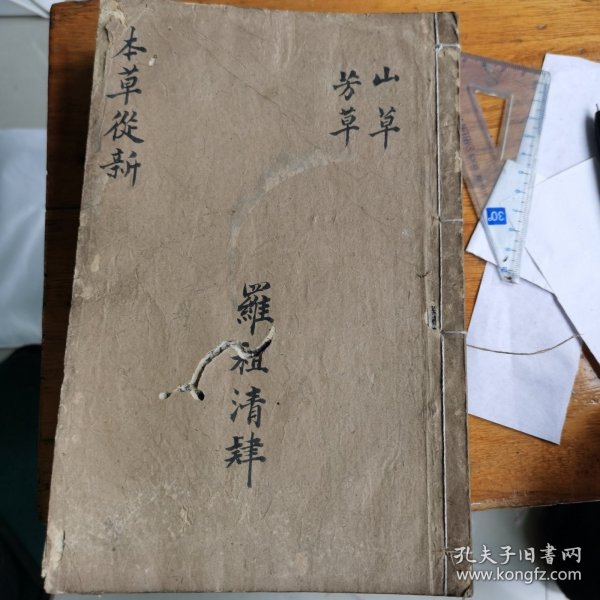 山草
芳草
本草從新
羅祖清肄
30°
孔夫子旧书网
www.kongfz.com